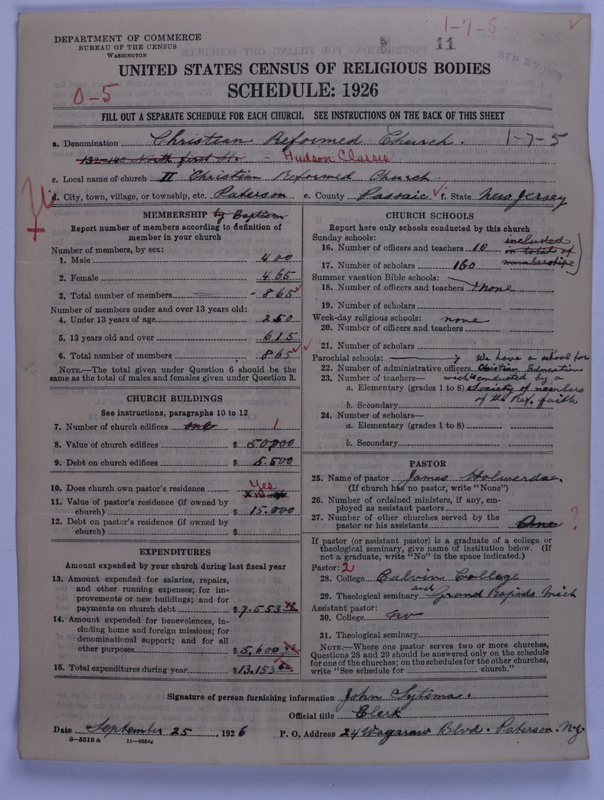 1-7-5
11
DEPARTMENT OF COMMERCE
BUREAU OF THE CENSUS
WASHINGTON
UNITED STATES CENSUS OF RELIGIOUS BODIES
0-5
SCHEDULE: 1926
FILL OUT A SEPARATE SCHEDULE FOR EACH CHURCH. SEE INSTRUCTIONS ON THE BACK OF THIS SHEET
a. Denomination Christian Reformed Church. 1-7-5
North first Str - Hudson Classis
c. Local name of church II Christian Reformed Church.
d. City, town, village, or township, etc. Paterson e. County Passaic f. State New Jersey
MEMBERSHIP by Baptism
Report number of members according to definition of member in your church
Number of members, by sex:
1. Male 400
2. Female 465
3. Total number of members 865
Number of members under and over 13 years old:
4. Under 13 years of age 250
5. 13 years old and over 615
6. Total number of members 865
NOTE.—The total given under Question 6 should be the same as the total of males and females given under Question 3.
CHURCH BUILDINGS
See instructions, paragraphs 10 to 12
7. Number of church edifices one 1
8. Value of church edifices $ 50,000
9. Debt on church edifices $ 5.500
10. Does church own pastor's residence Yes
11. Value of pastor's residence (if owned by church) $ 15.000
12. Debt on pastor's residence (if owned by church) $
EXPENDITURES
Amount expended by your church during last fiscal year
13. Amount expended for salaries, repairs, and other running expenses; for improvements or new buildings; and for payments on church debt $7.553
14. Amount expended for benevolences, including home and foreign missions; for denominational support; and for all other purposes $5,600
15. Total expenditures during year $13,153
CHURCH SCHOOLS
Report here only schools conducted by this church
Sunday schools:
16. Number of officers and teachers 10 included in total of membership
17. Number of scholars 160
Summer vacation Bible schools:
18. Number of officers and teachers none
19. Number of scholars
Week-day religious schools: none
20. Number of officers and teachers
21. Number of scholars
Parochial schools: We have a school for
22. Number of administrative officers Christian Education
23. Number of teachers— which conducted by a
a. Elementary (grades 1 to 8) Society of members
b. Secondary of the Ref. faith
24. Number of scholars—
a. Elementary (grades 1 to 8)
b. Secondary
PASTOR
25. Name of pastor James Holwerda
(If church has no pastor, write "None")
26. Number of ordained ministers, if any, employed as assistant pastors
27. Number of other churches served by the pastor or his assistants One ?
If pastor (or assistant pastor) is a graduate of a college or theological seminary, give name of institution below. (If not a graduate, write "No" in the space indicated.)
Pastor: 2
28. College Calvin College
and
29. Theological seminary Grand Rapids Mich
Assistant pastor:
30. College no
31. Theological seminary
NOTE.—Where one pastor serves two or more churches, Questions 28 and 29 should be answered only on the schedule for one of the churches; on the schedules for the other churches, write "See schedule for church."
Signature of person furnishing information John Sytsma.
Official title Clerk
Date September 25, 1926 P. O. Address 24 Wagaraw Blvd. Paterson N.J.
8-5518a 11-9064